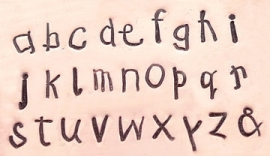 a b c d e f g h i
j k l m n o p q r
s t u v w x y z &